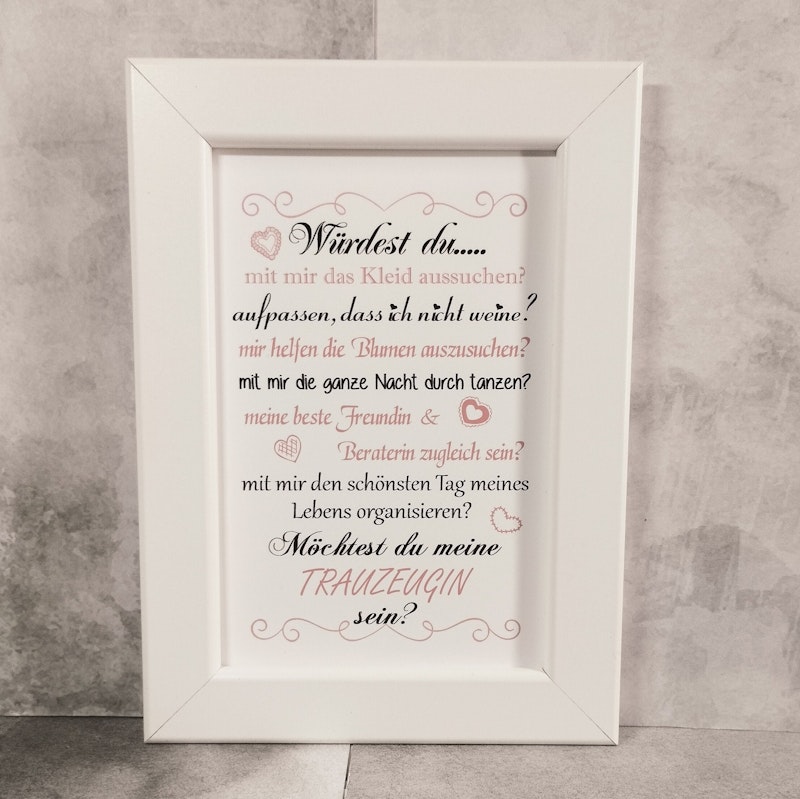 Würdest du.....
mit mir das Kleid aussuchen?
aufpassen, dass ich nicht weine?
mir helfen die Blumen auszusuchen?
mit mir die ganze Nacht durch tanzen?
meine beste Freundin &
Beraterin zugleich sein?
mit mir den schönsten Tag meines
Lebens organisieren?
Möchtest du meine
TRAUZEUGIN
sein?